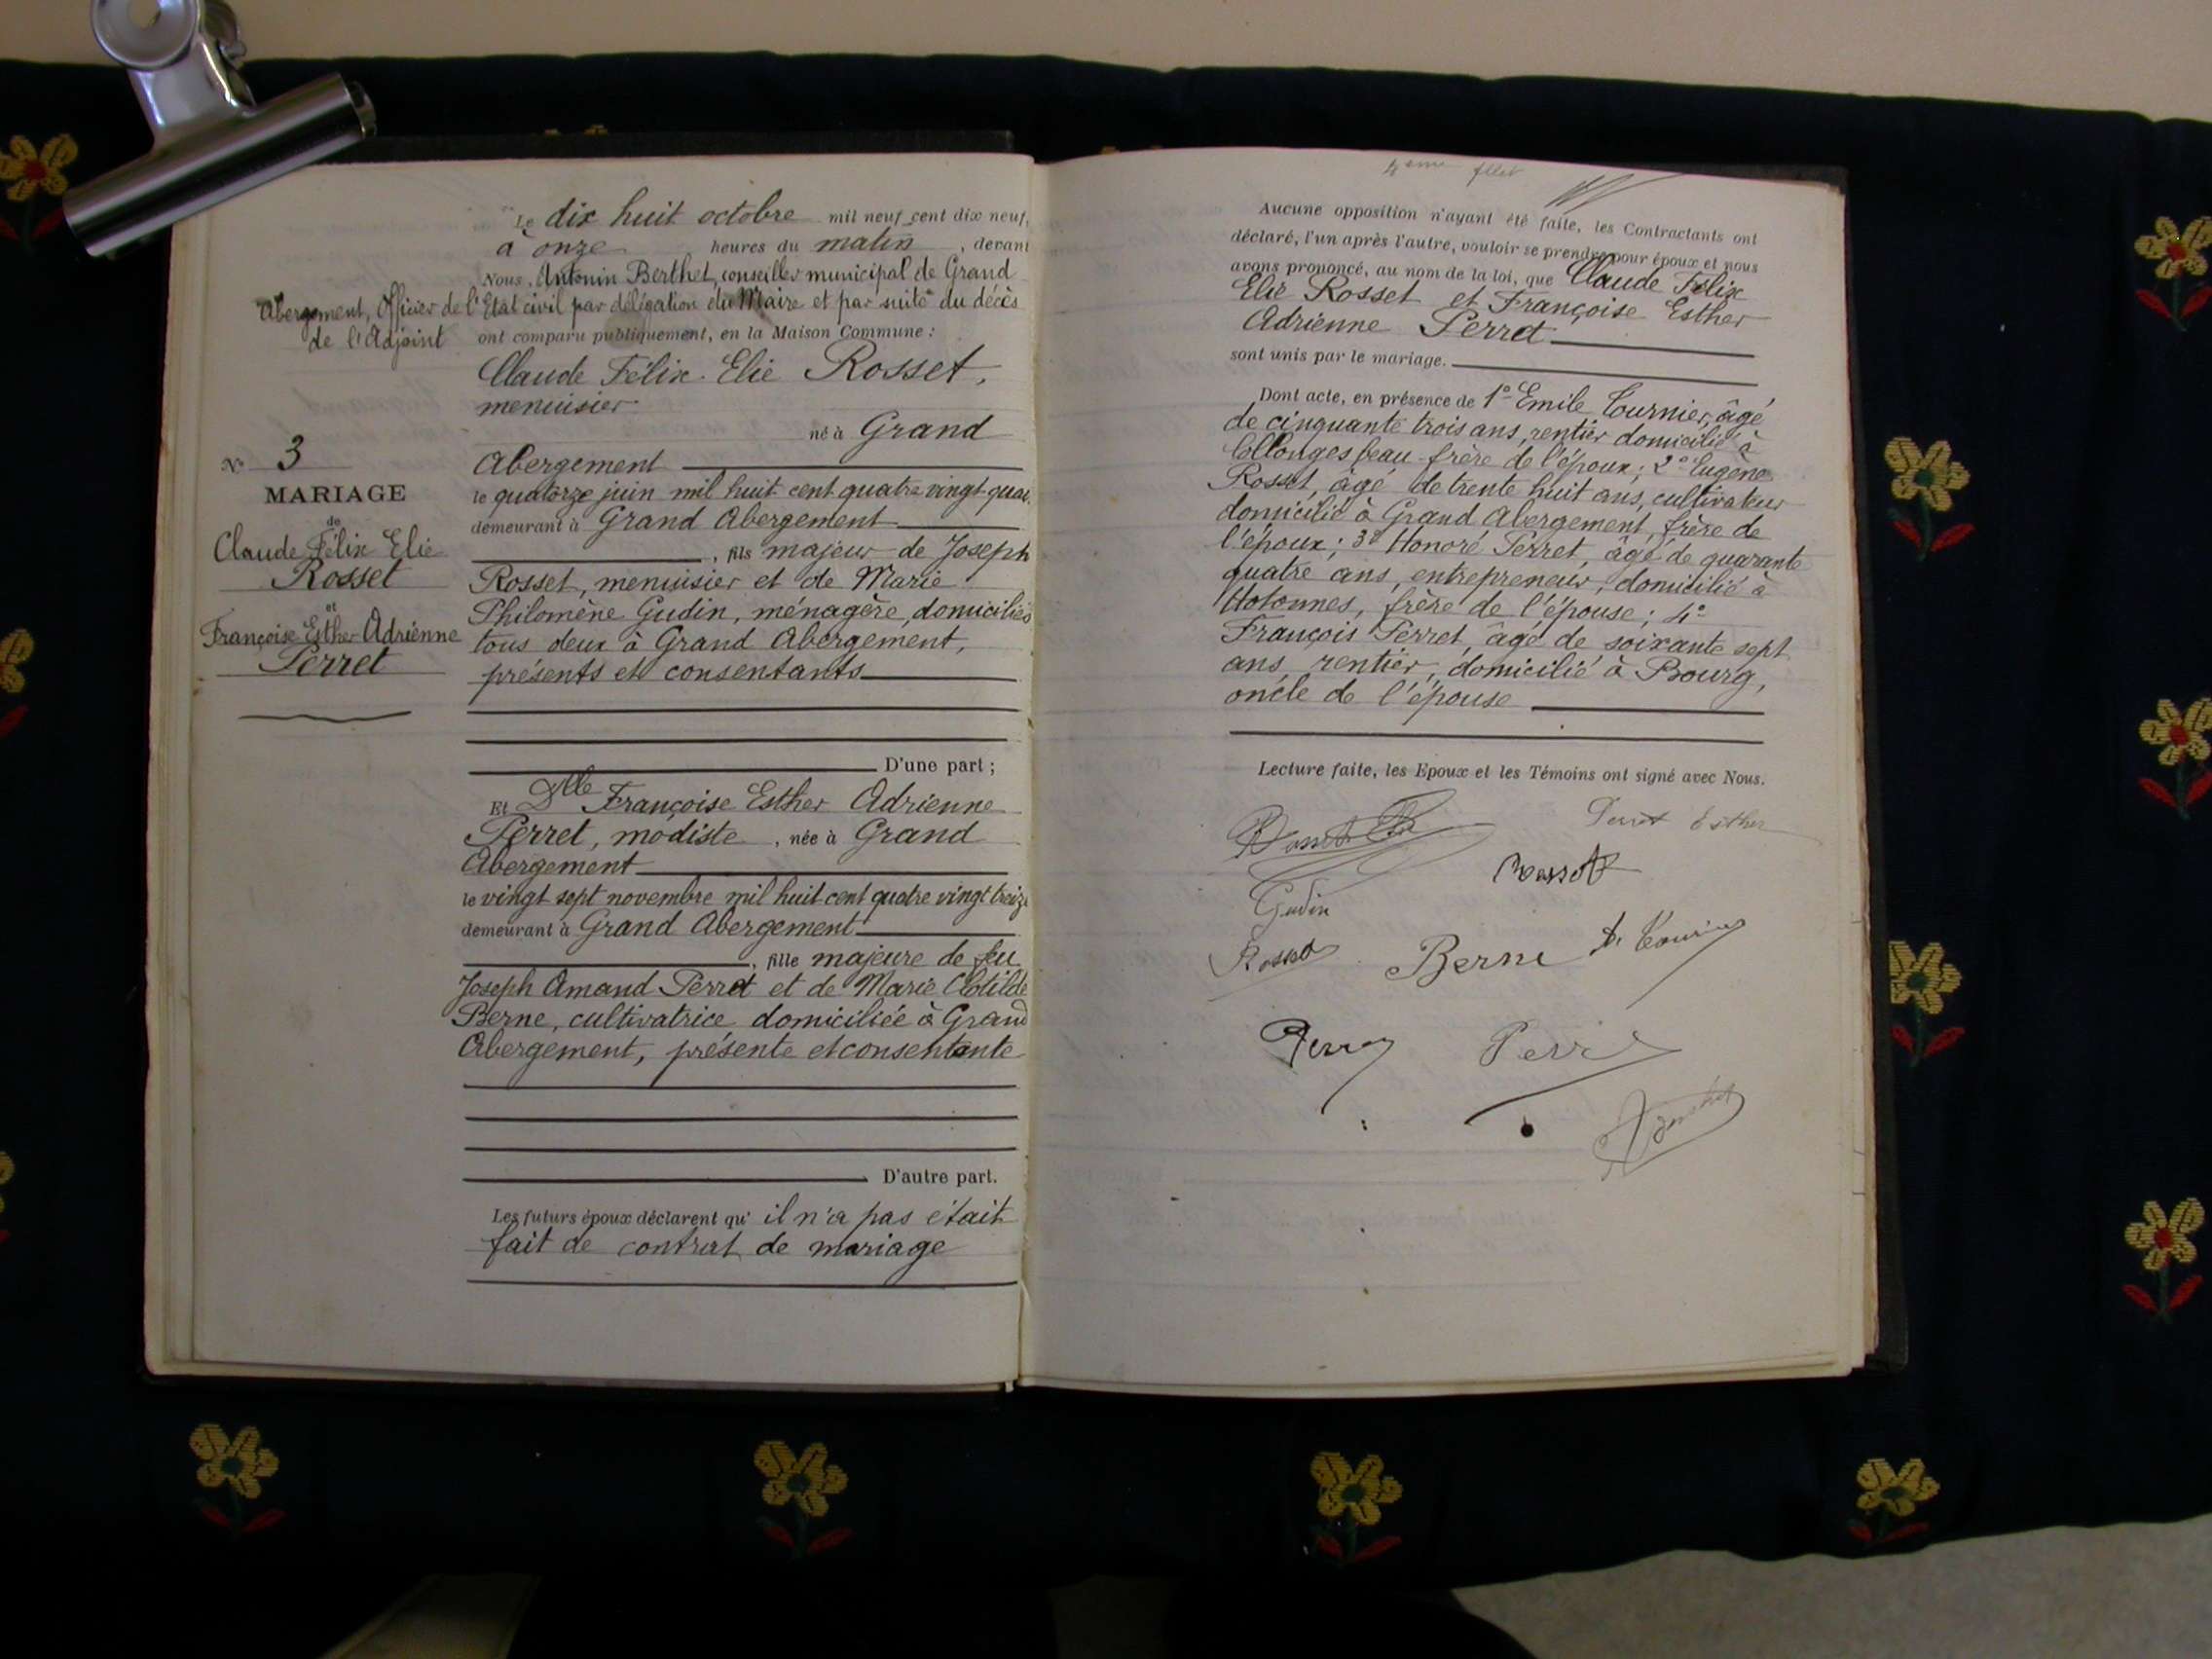 Le dix huit octobre mil neuf cent dix neuf,
à onze heures du matin, devant
Nous, Antonin Berthet, conseiller municipal de Grand
Abergement, Officier de l'Etat civil par délégation du Maire et par suite du décès
de l'Adjoint ont comparu publiquement, en la Maison Commune :
Claude Félix Elie Rosset,
menuisier
né à Grand
Abergement
le quatorze juin mil huit cent quatre vingt quat
demeurant à Grand Abergement
, fils majeur de Joseph
Rosset, menuisier et de Marie
Philomène Gudin, ménagère, domiciliés
tous deux à Grand Abergement,
présents et consentants
D'une part ;
Et Dlle Françoise Esther Adrienne
Perret, modiste, née à Grand
Abergement
le vingt sept novembre mil huit cent quatre vingt treize
demeurant à Grand Abergement
, fille majeure de feu
Joseph Amand Perret et de Marie Clotilde
Berne, cultivatrice domiciliée à Grand
Abergement, présente et consentante
D'autre part.
Les futurs époux déclarent qu' il n'a pas était
fait de contrat de mariage
No 3
MARIAGE
de
Claude Félix Elie
Rosset
et
Françoise Esther Adrienne
Perret
4eme
Aucune opposition n'ayant été faite, les Contractants ont
déclaré, l'un après l'autre, vouloir se prendre pour époux et nous
avons prononcé, au nom de la loi, que Claude Félix
Elie Rosset et Françoise Esther
Adrienne Perret
sont unis par le mariage.
Dont acte, en présence de 1° Emile Tournier, âgé
de cinquante trois ans, rentier domicilié à
Collonges beau-frère de l'époux ; 2° Eugène
Rosset, âgé de trente huit ans, cultivateur
domicilié à Grand Abergement, frère de
l'époux ; 3° Honoré Perret, âgé de quarante
quatre ans, entrepreneur, domicilié à
Hotonnes, frère de l'épouse ; 4°
François Perret, âgé de soixante sept
ans, rentier, domicilié à Bourg,
oncle de l'épouse
Lecture faite, les Epoux et les Témoins ont signé avec Nous.
Perret Esther
Rosset
Gudin
Rosset Berne